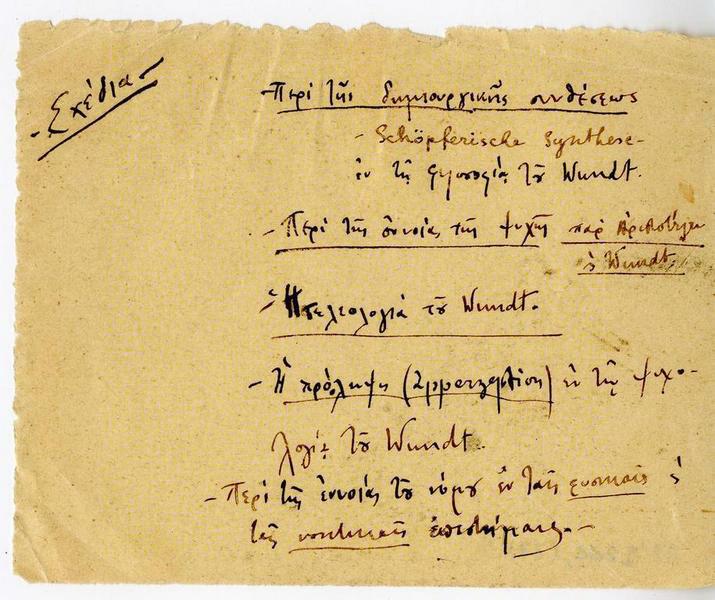 - Σχέδια -
- Περὶ τῆς δημιουργικῆς συνθέσεως
- Schöpferische Synthese -
ἐν τῇ φιλοσοφίᾳ τοῦ Wundt.
- Περὶ τῆς ἐννοίας τῆς ψυχῆς παρ' Ἀριστοτέλει
Wundt.
- Ἡ τελεολογία τοῦ Wundt.
- Ἡ πρόληψις (Apperzeption) ἐν τῇ ψυχο-
λογίᾳ τοῦ Wundt.
- Περὶ τῆς ἐννοίας τοῦ νόμου ἐν ταῖς φυσικαῖς
ταῖς νοητικαῖς ἐπιστήμαις. -